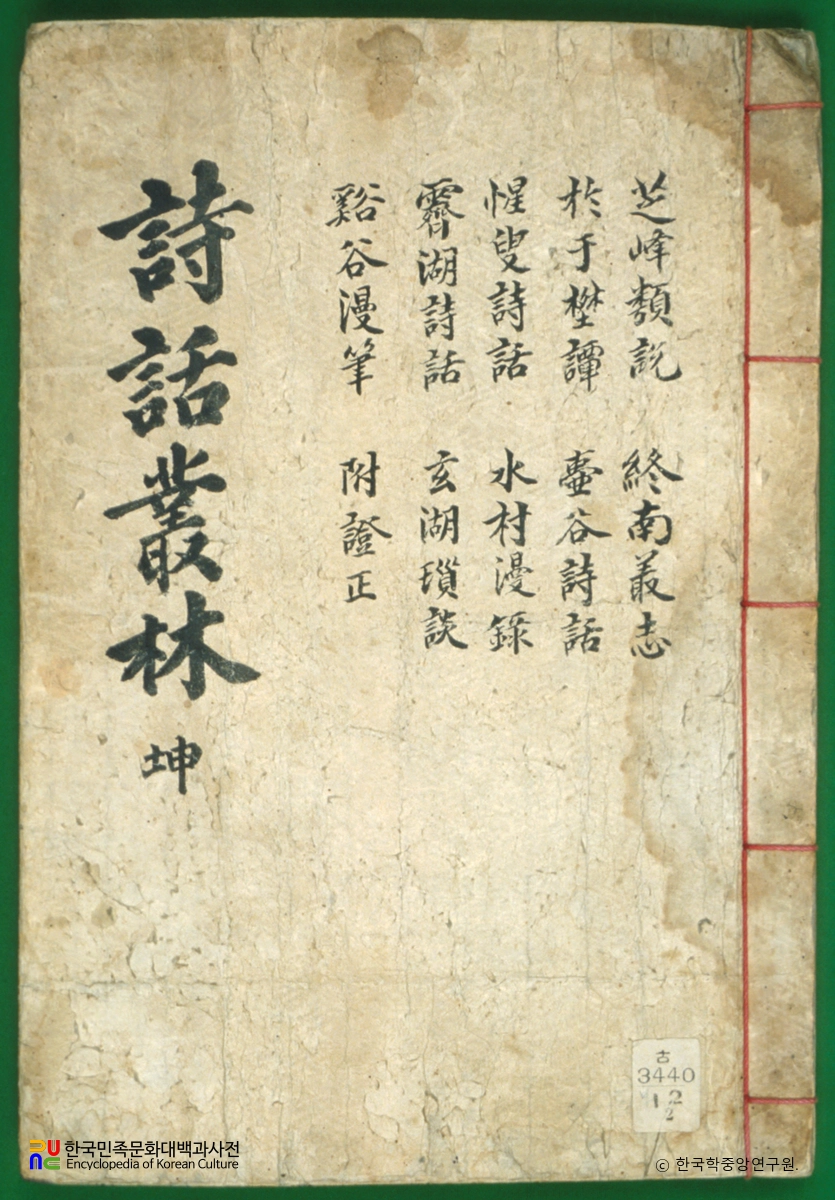 芝峰類說 終南叢志
於于樊譚 壺谷詩話
惺叟詩話 水村漫錄
霽湖詩話 玄湖瑣談
谿谷漫筆 附證正
詩話叢林 坤
古
3440
12
2
한국민족문화대백과사전
Encyclopedia of Korean Culture
© 한국학중앙연구원.